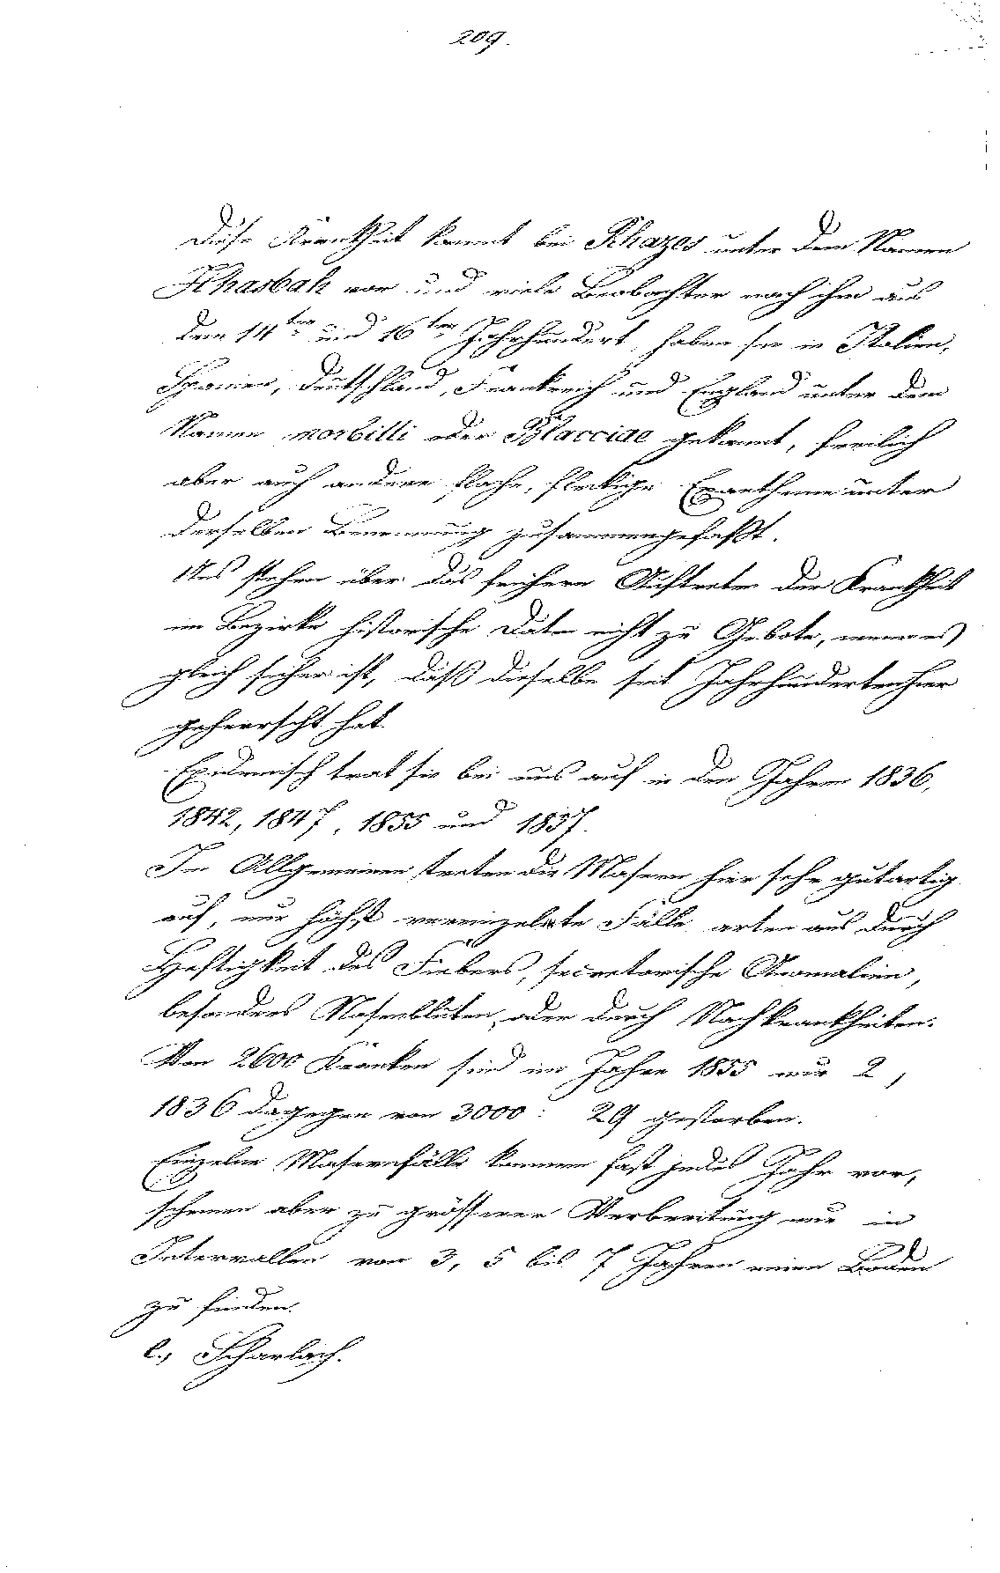 209.
Diese Krankheit kommt bei Rhazes unter dem Namen
Hhasbah vor und viele Beobachter nach ihm aus
dem 14ten und 16ten Jahrhundert, haben sie in Italien,
Spanien, Deutschland, Frankreich und England unter dem
Namen morbilli oder Blacciae gekannt, freilich
aber auch andere flache, fleckige Exantheme unter
derselben Benennung zusammengefaßt.
Uns stehen über das frühere Auftreten der Krankheit
im Bezirke historische Daten nicht zu Gebote, wenn es
gleich sicher ist, daß dieselbe seit Jahrhunderten hier
geherrscht hat.
Epidemisch trat sie bei uns auf in den Jahren 1836,
1842, 1847, 1855 und 1857.
Im Allgemeinen treten die Masern hier sehr gutartig
auf, nur höchst vereinzelte Fälle arten aus durch
Heftigkeit des Fiebers, secretorische Anomalien,
besonders Nasenbluten, oder durch Nachkrankheiten.
Von 2600 Kranken sind im Jahre 1855 nur 2,
1836 dagegen von 3000: 29 gestorben.
Einzelne Masernfälle kommen fast jedes Jahr vor,
scheinen aber zu grösserer Verbreitung nur in
Intervallen von 3, 5 bis 7 Jahren einen Boden
zu finden.
c., Scharlach.